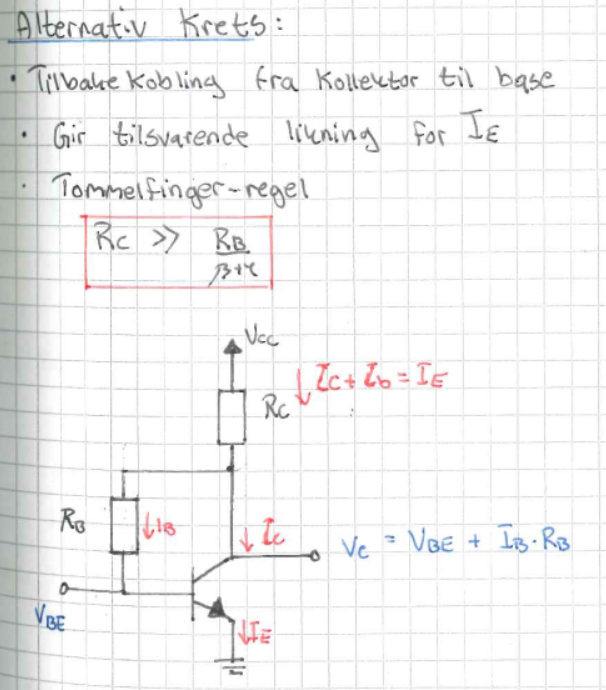 Alternativ Krets:
• Tilbakekobling fra Kollektor til base
• Gir tilsvarende likning for IE
• Tommelfinger-regel
RC >> RB
β+1
VCC
↓ IC + Ib = IE
RC
RB
↓IB
↓ IC
VC = VBE + IB·RB
VBE
↓IE